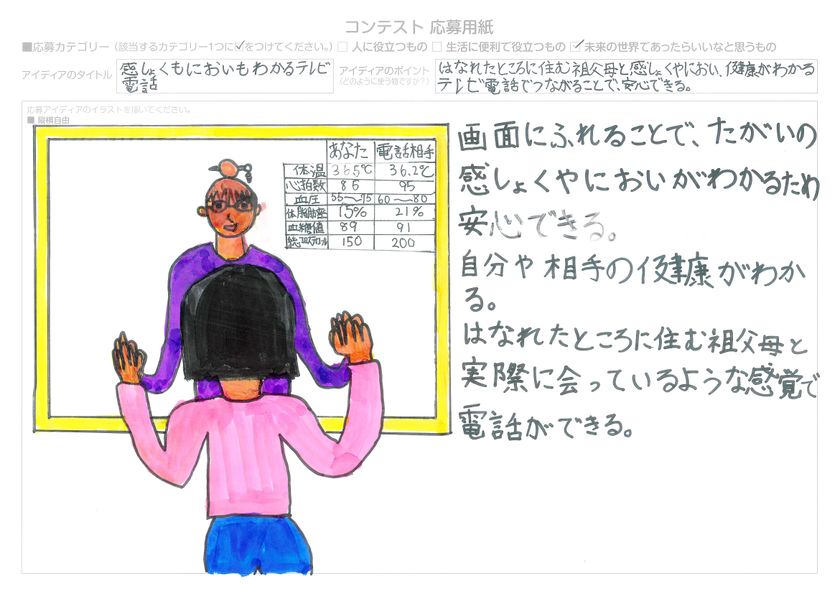 コンテスト 応募用紙
■応募カテゴリー（該当するカテゴリー1つに☑をつけてください。） □ 人に役立つもの □ 生活に便利で役立つもの ☑ 未来の世界であったらいいなと思うもの
アイディアのタイトル
感しょくもにおいもわかるテレビ
電話
アイディアのポイント
（どのように使う物ですか？）
はなれたところに住む祖父母と感しょくやにおい、健康がわかる
テレビ電話でつながることで、安心できる。
応募アイディアのイラストを描いてください。
■ 縦横自由
あなた 電話相手
体温 36.5℃ 36.2℃
心拍数 86 95
血圧 55〜75 60〜80
体脂肪率 15% 21%
血糖値 89 91
総コレステロール 150 200
画面にふれることで、たがいの
感しょくやにおいがわかるため
安心できる。
自分や相手の健康がわか
る。
はなれたところに住む祖父母と
実際に会っているような感覚で
電話ができる。